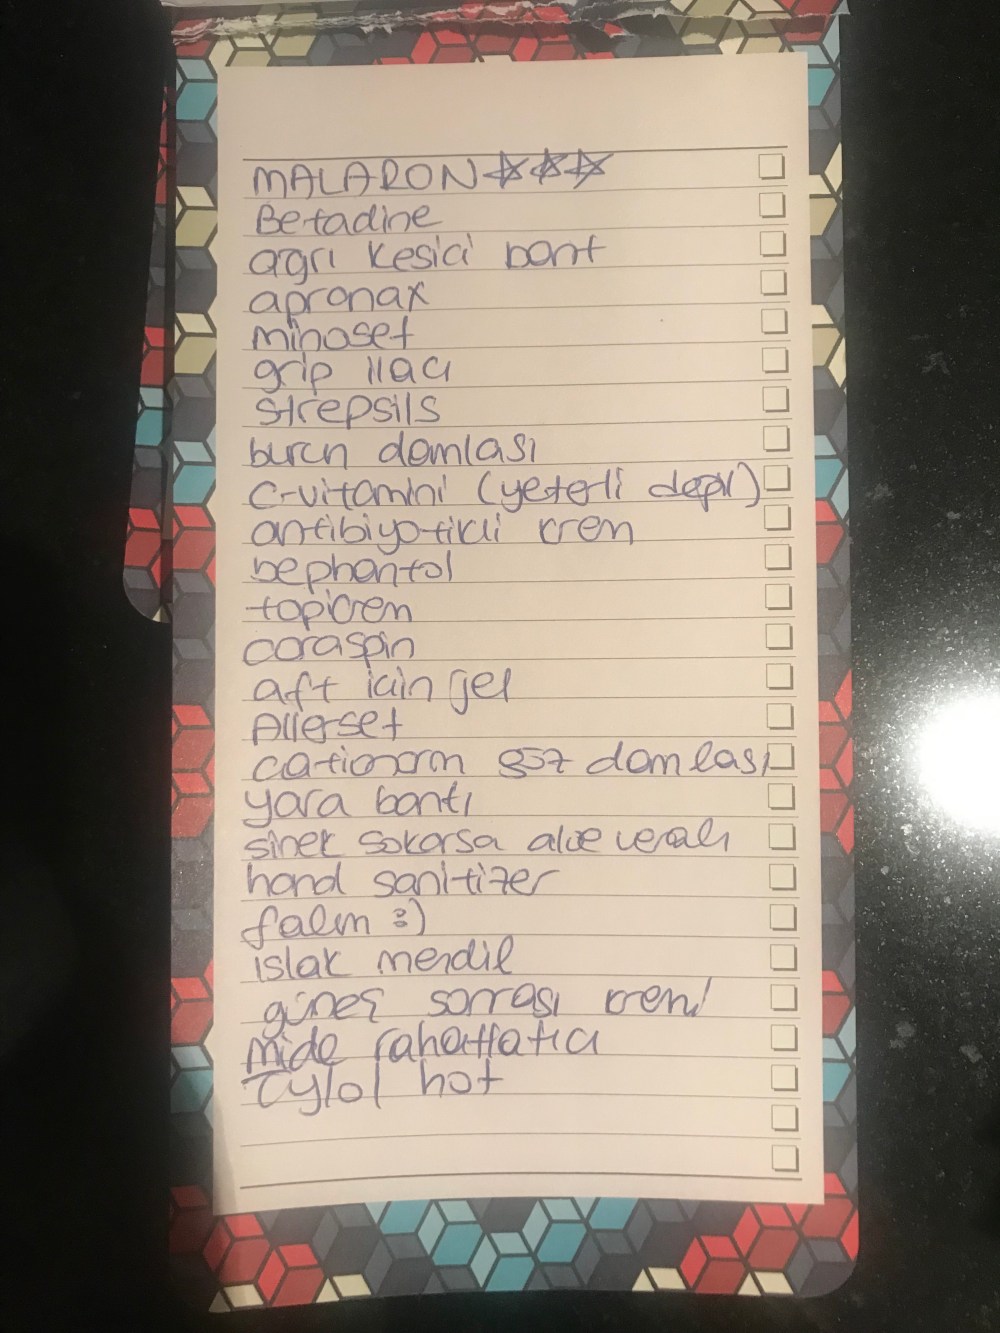 MALARON ☆☆☆
Betadine
agrı kesici bant
apranax
minoset
grip ilacı
strepsils
burun damlası
C-vitamini (yeterli değil)
antibiyotikli krem
bephantol
topicrem
coraspin
aft için jel
Allerset
cationorm göz damlası
yara bantı
sinek sokarsa aloe veralı
hand sanitizer
falım :)
ıslak mendil
güneş sonrası krem
mide rahatlatıcı
Tylol hot